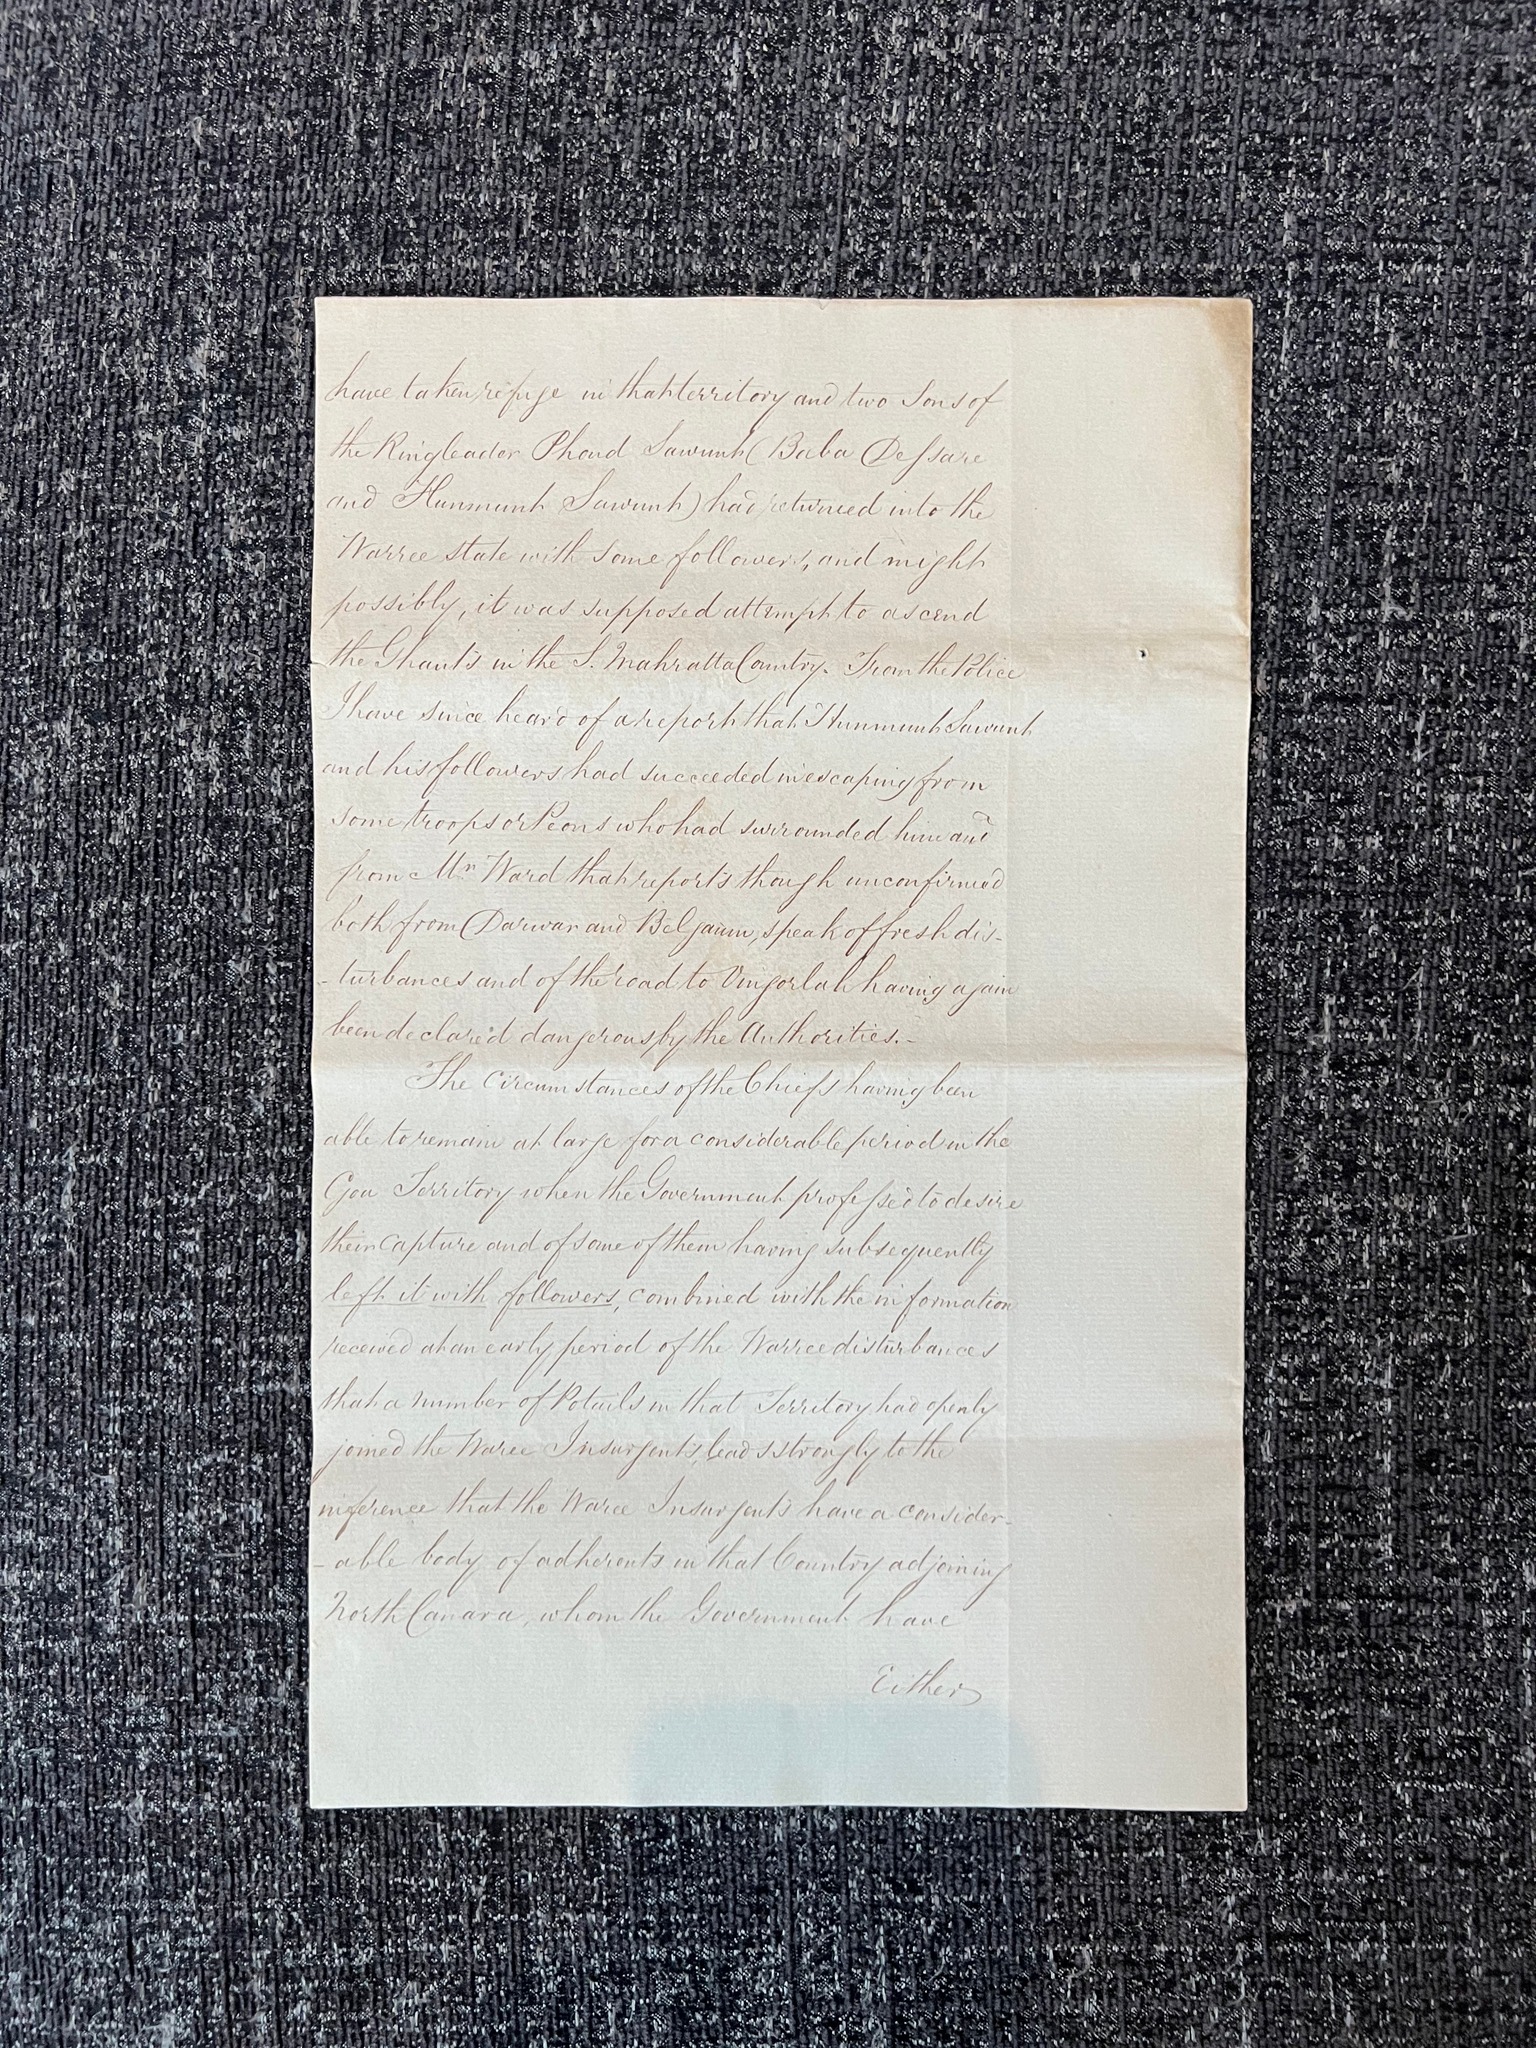 have taken refuge in that territory and two Sons of
the Ringleader Phond Sawunt (Baba Dessare
and Hunmunt Sawunt) had returned into the
Warree state with some followers, and might
possibly, it was supposed attempt to ascend
the Ghauts in the S. Mahratta Country. From the Police
I have since heard of a report that Hunmunt Sawunt
and his followers had succeeded in escaping from
some troops or Peons who had surrounded him and
from Mr Ward that reports though unconfirmed
both from Darwar and Belgaum, speak of fresh dis-
-turbances and of the road to Vingorlah having again
been declared dangerous by the Authorities.-
The Circumstances of the Chiefs having been
able to remain at large for a considerable period in the
Goa Territory when the Government professed to desire
their capture and of some of them having subsequently
left it with followers, combined with the information
received at an early period of the Warree disturbances
that a number of Potails in that Territory had openly
joined the Waree Insurgents, leads strongly to the
inference that the Waree Insurgents have a consider-
-able body of adherents in that Country adjoining
North Canara, whom the Government have
Either